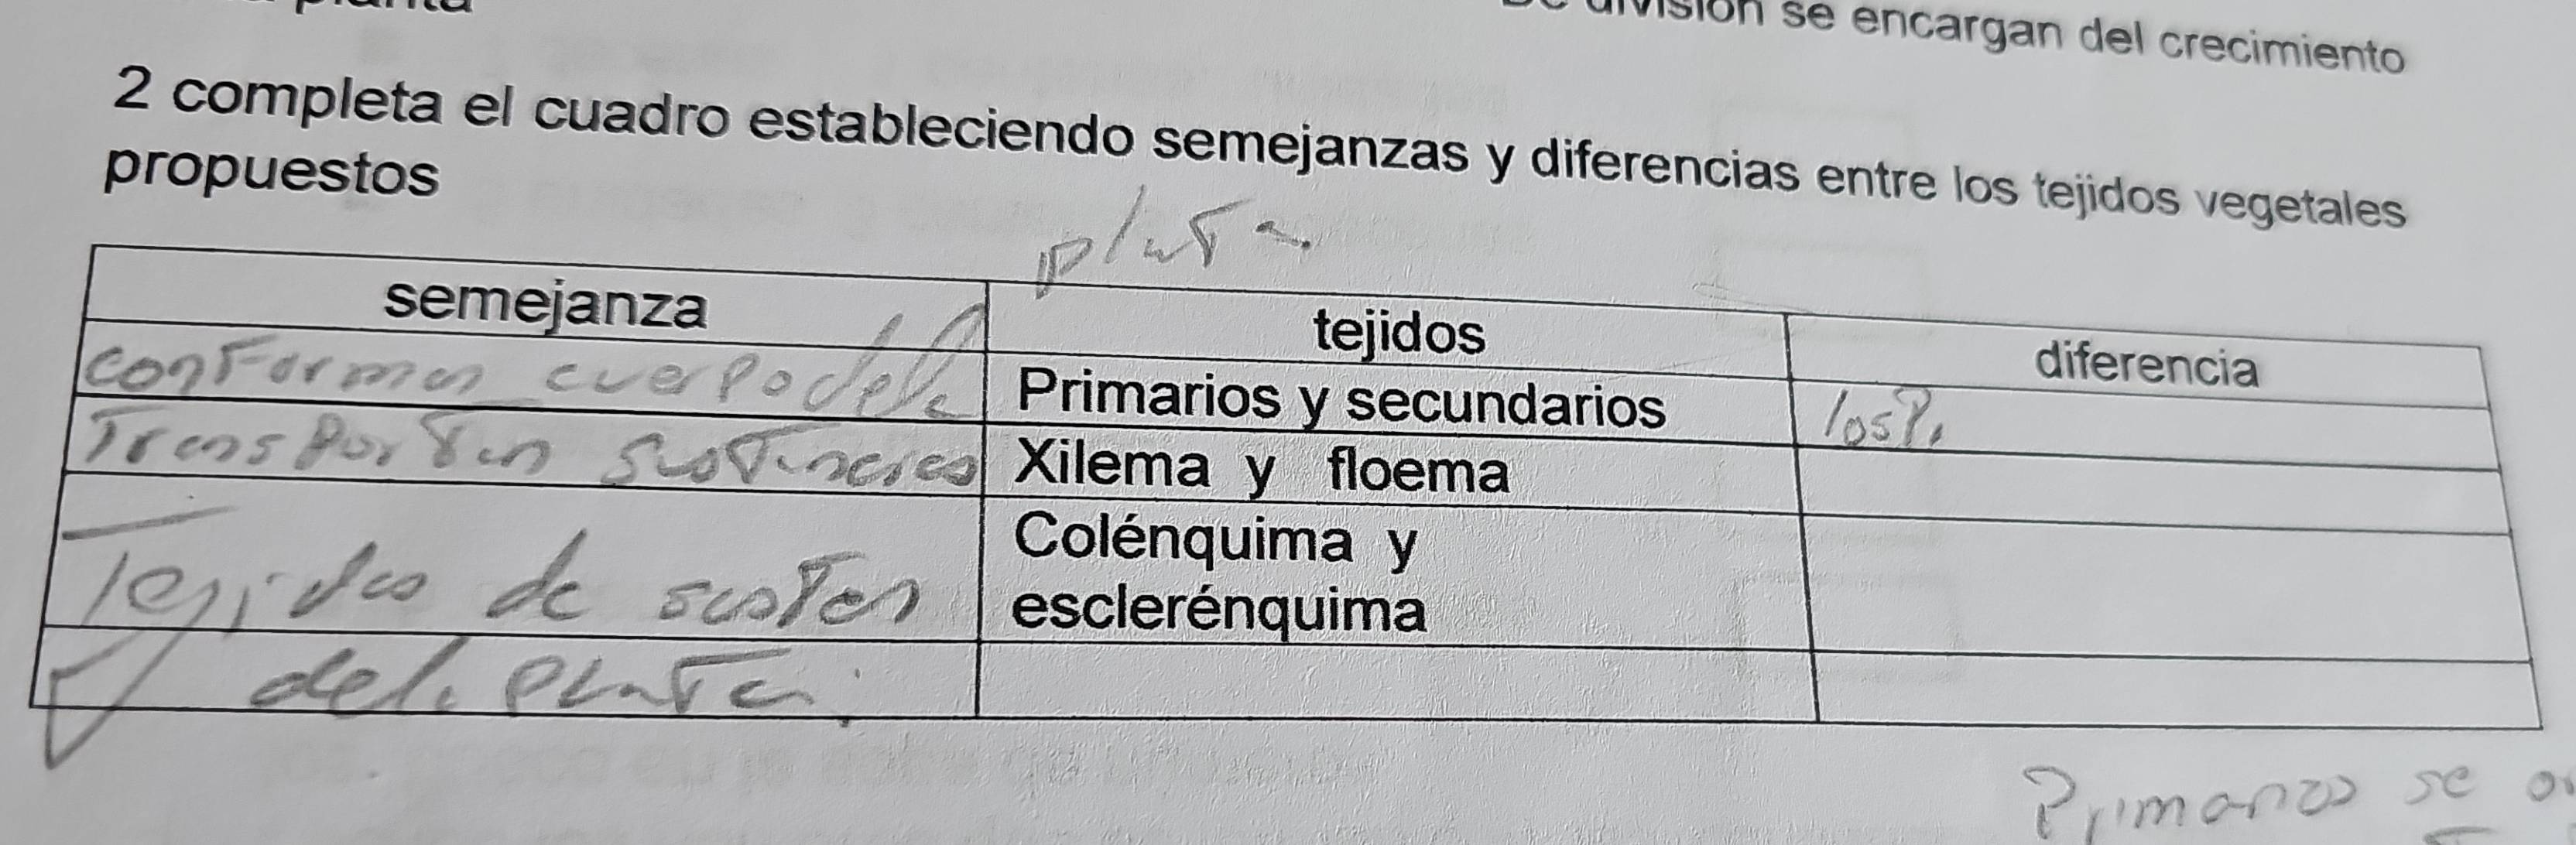 se encargan del crecimiento
2 completa el cuadro estableciendo semejanzas y diferencias entre los tejidos vegetales
propuestos
semejanza
tejidos
diferencia
conforman cuerpo de la
Primarios y secundarios
los
Transportan sustancias
Xilema y floema
Tejidos de sosten
Colénquima y
esclerénquima
de la
Primarios se